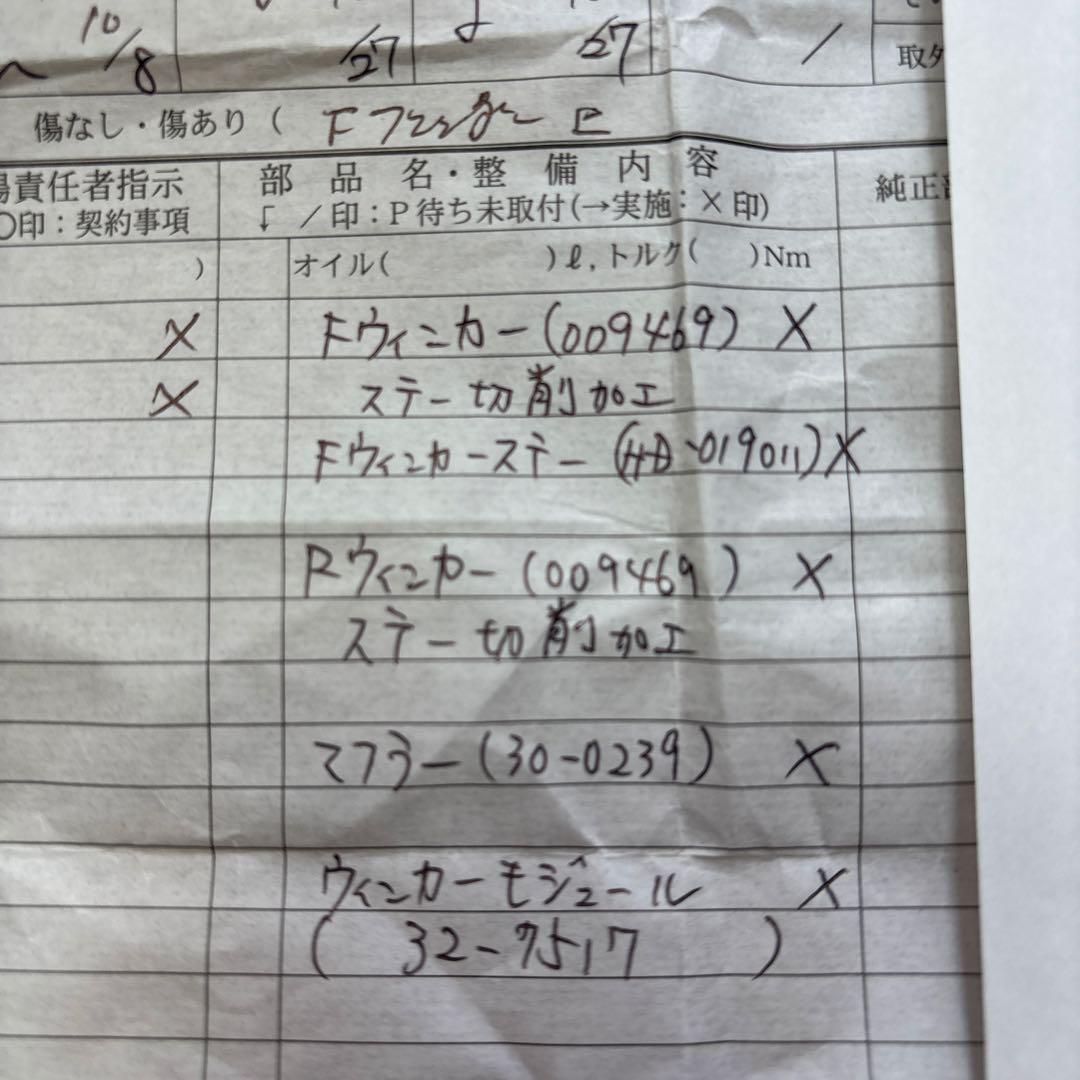 10/8 27 27 /
取外
傷なし・傷あり ( F
場責任者指示 部品名・整備内容 純正部
○印：契約事項 ↓ ／印：P待ち未取付(→実施：×印)
) オイル( )ℓ, トルク( )Nm
X Fウィンカー(009469) X
X ステー切削加工
Fウィンカーステー (HD-019011) X
Rウィンカー(009469) X
ステー切削加工
マフラー(30-0239) X
ウィンカーモジュール X
( 32-7517 )